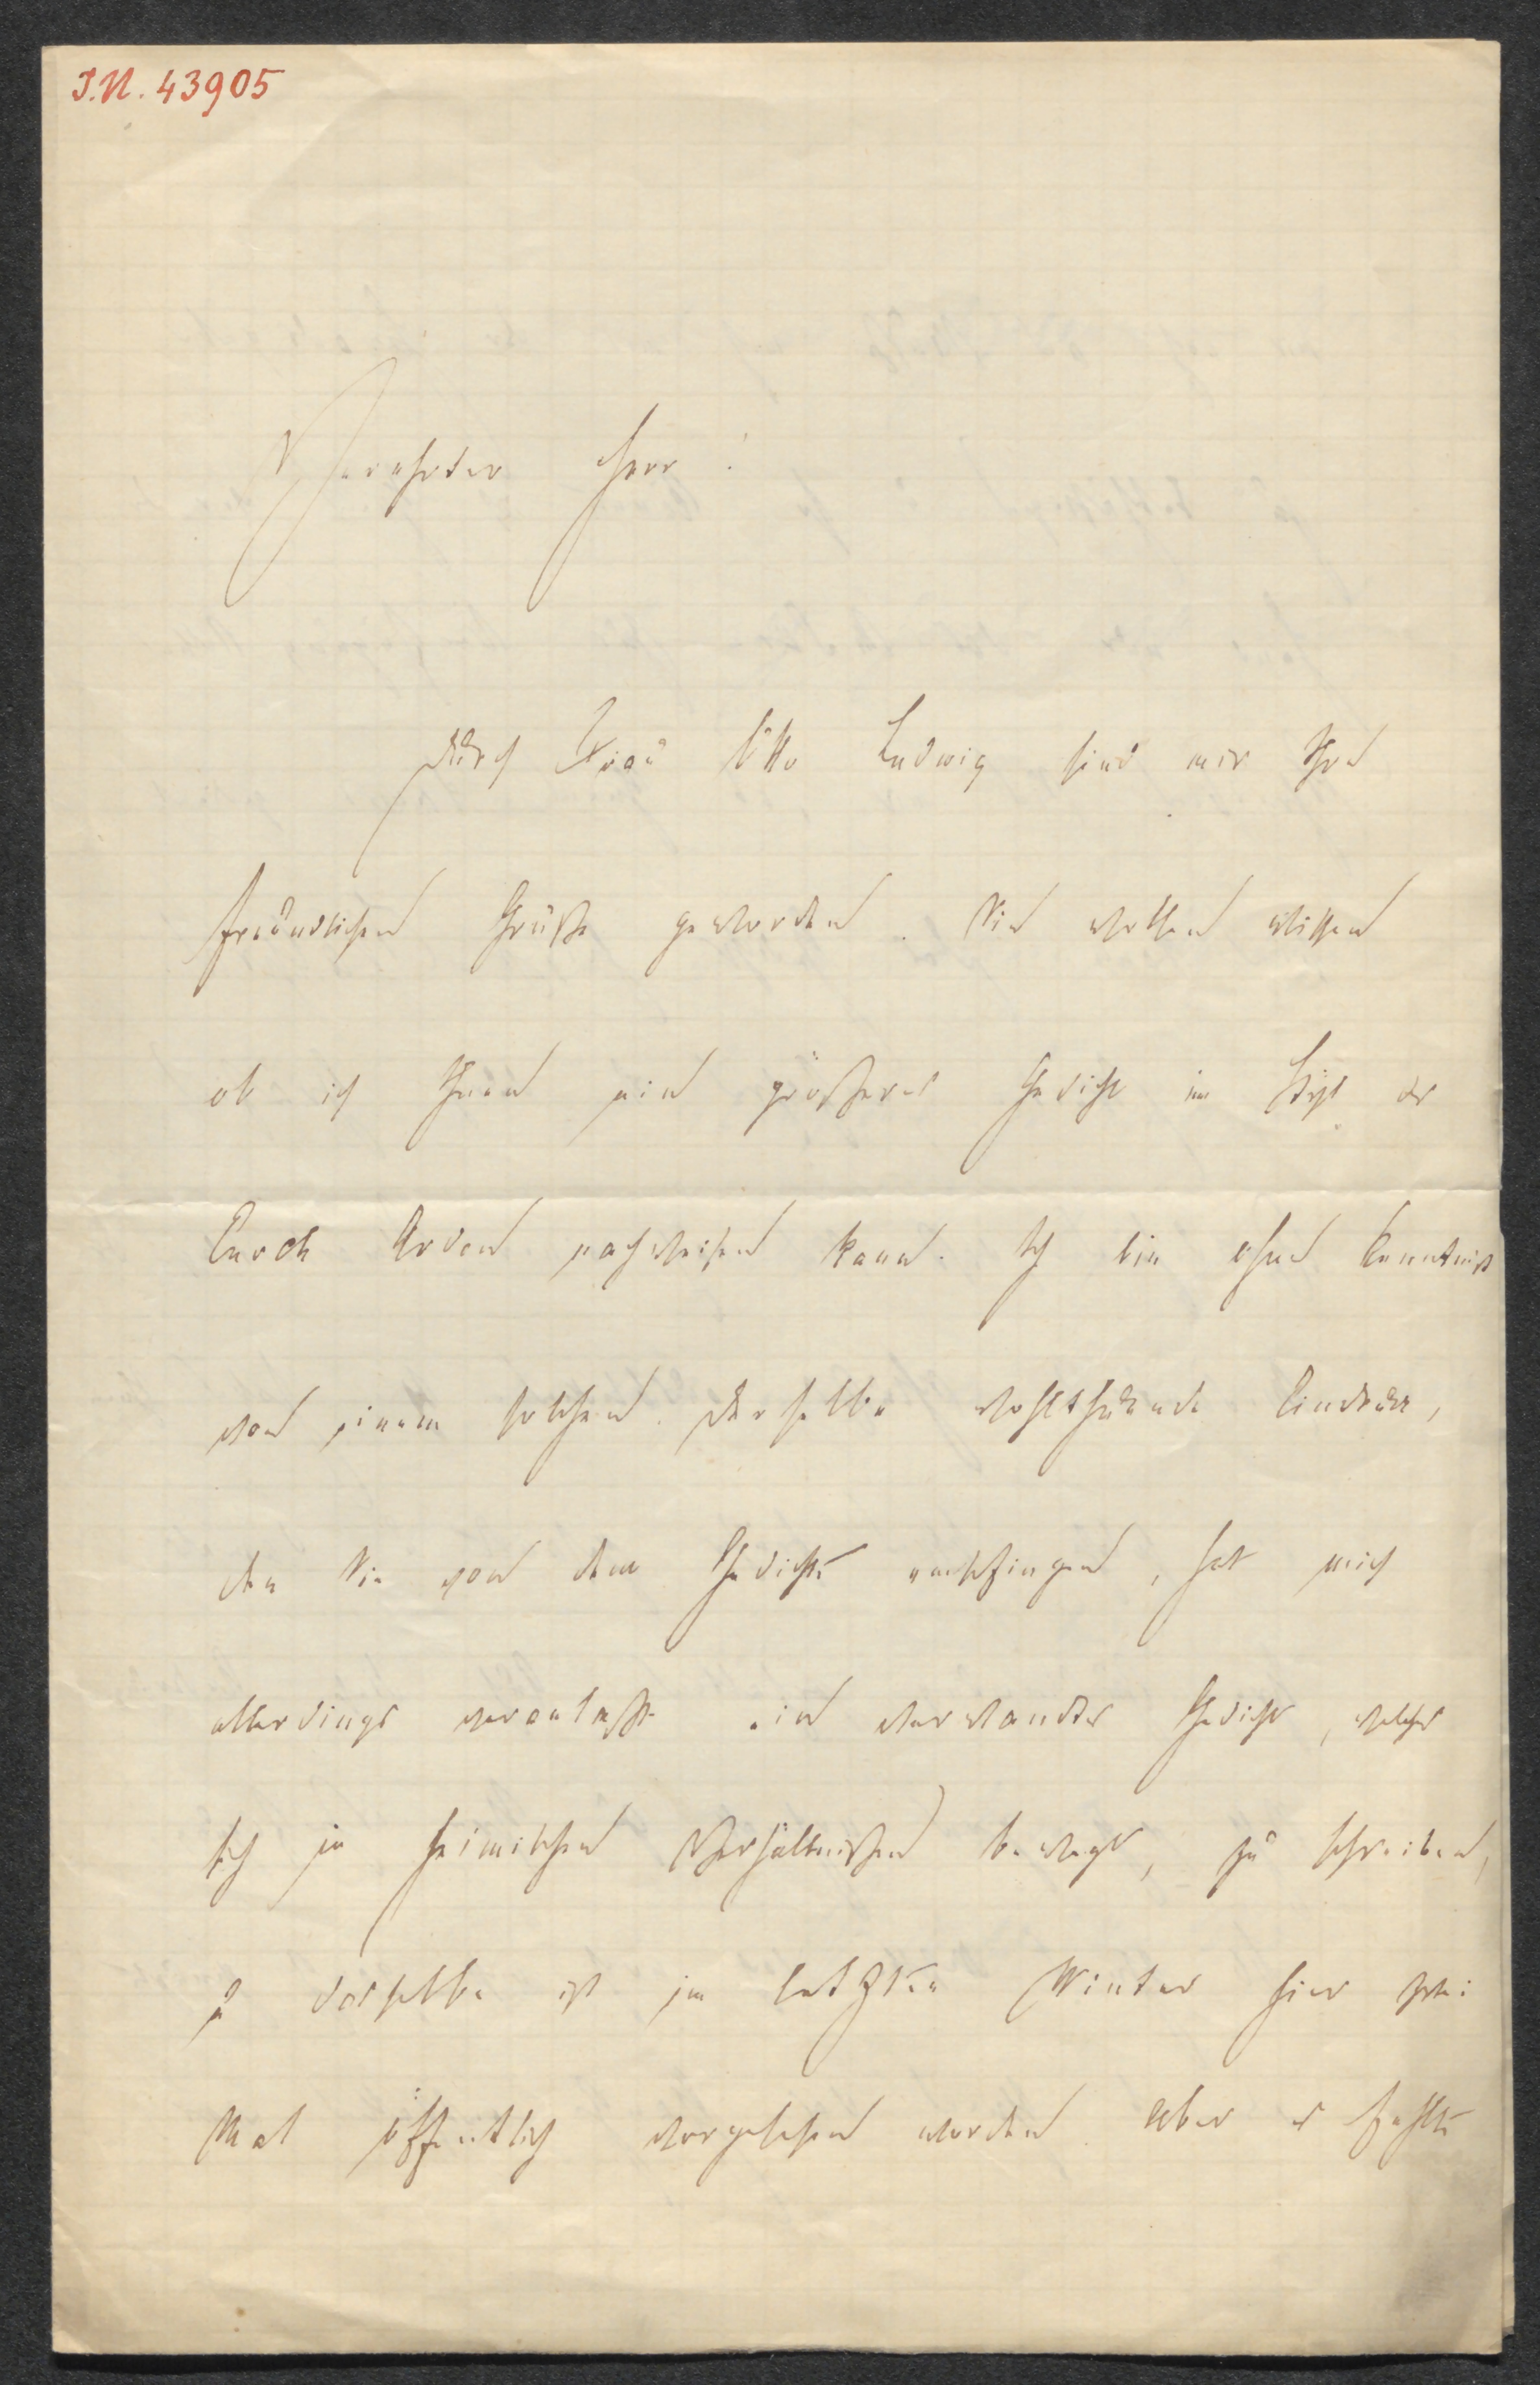 I.N. 43905
Verehrter Herr!
Durch Frau Otto Ludwig sind mir Ihre
freundlichen Grüße geworden. Sie wollen wissen
ob ich Ihnen ein größeres Gedicht im Styl des
Enoch Arden nachweisen kann. Ich bin ohne Kenntniß
von einem solchen. Derselbe wohlthuende Eindruck,
den Sie von dem Gedichte empfingen, hat mich
allerdings veranlaßt ein verwandtes Gedicht, welches
sich in heimischen Verhältnißen bewegt, zu schreiben,
u dasselbe ist im letzten Winter hier zwei
Mal öffentlich vorgelesen worden. Aber es fehlte